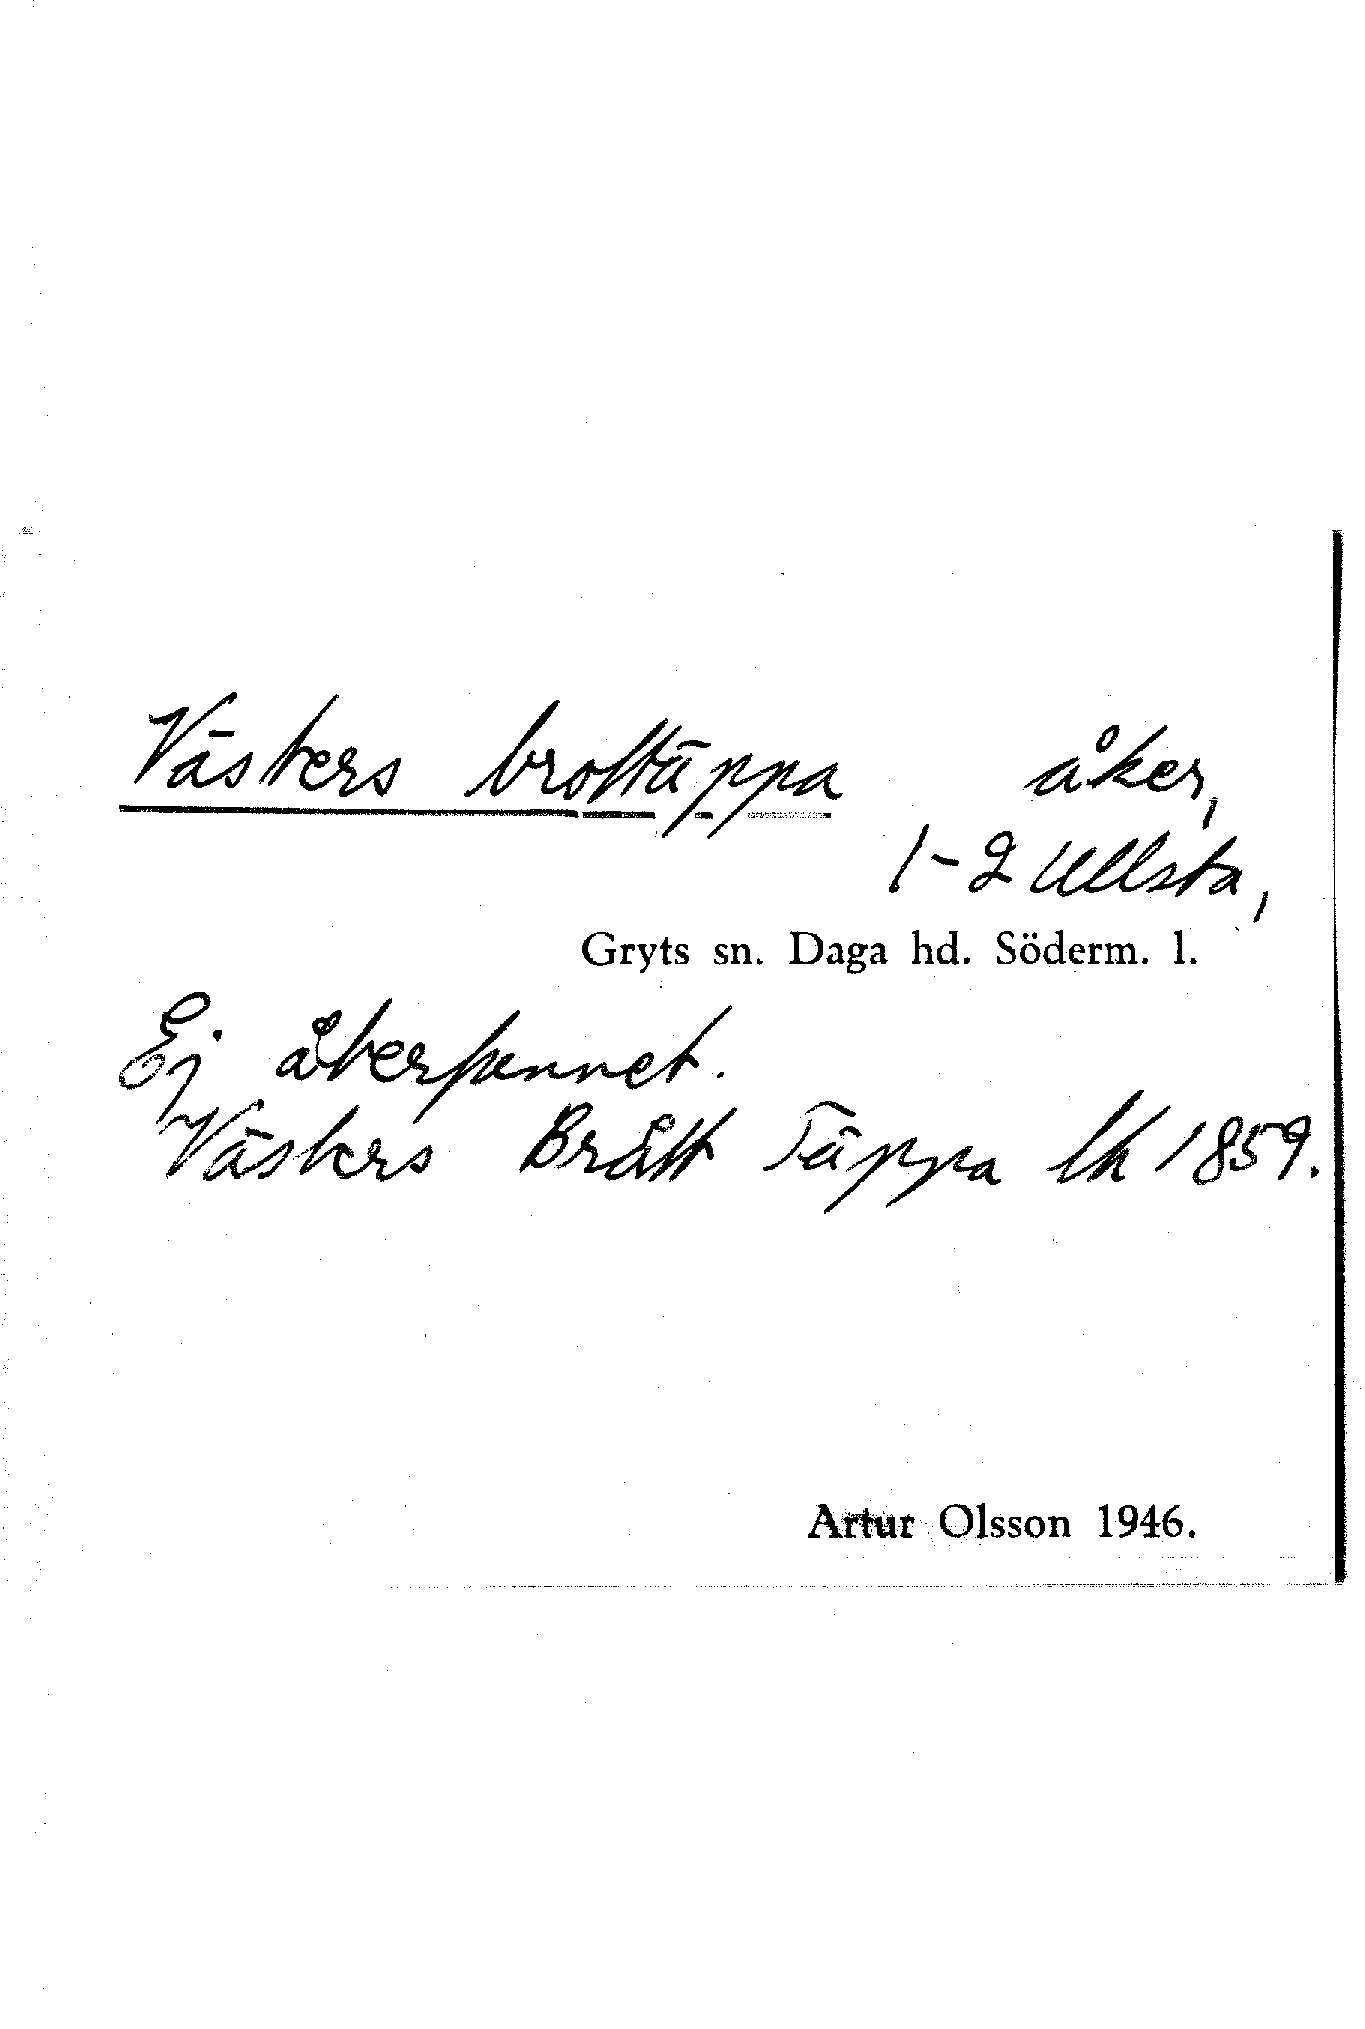 Västers brottäppa åker,
1-2 Ullsta,
Gryts sn. Daga hd. Söderm. l.
Ej återfunnet.
Västers Brått Täppa lk 1859.
Artur Olsson 1946.